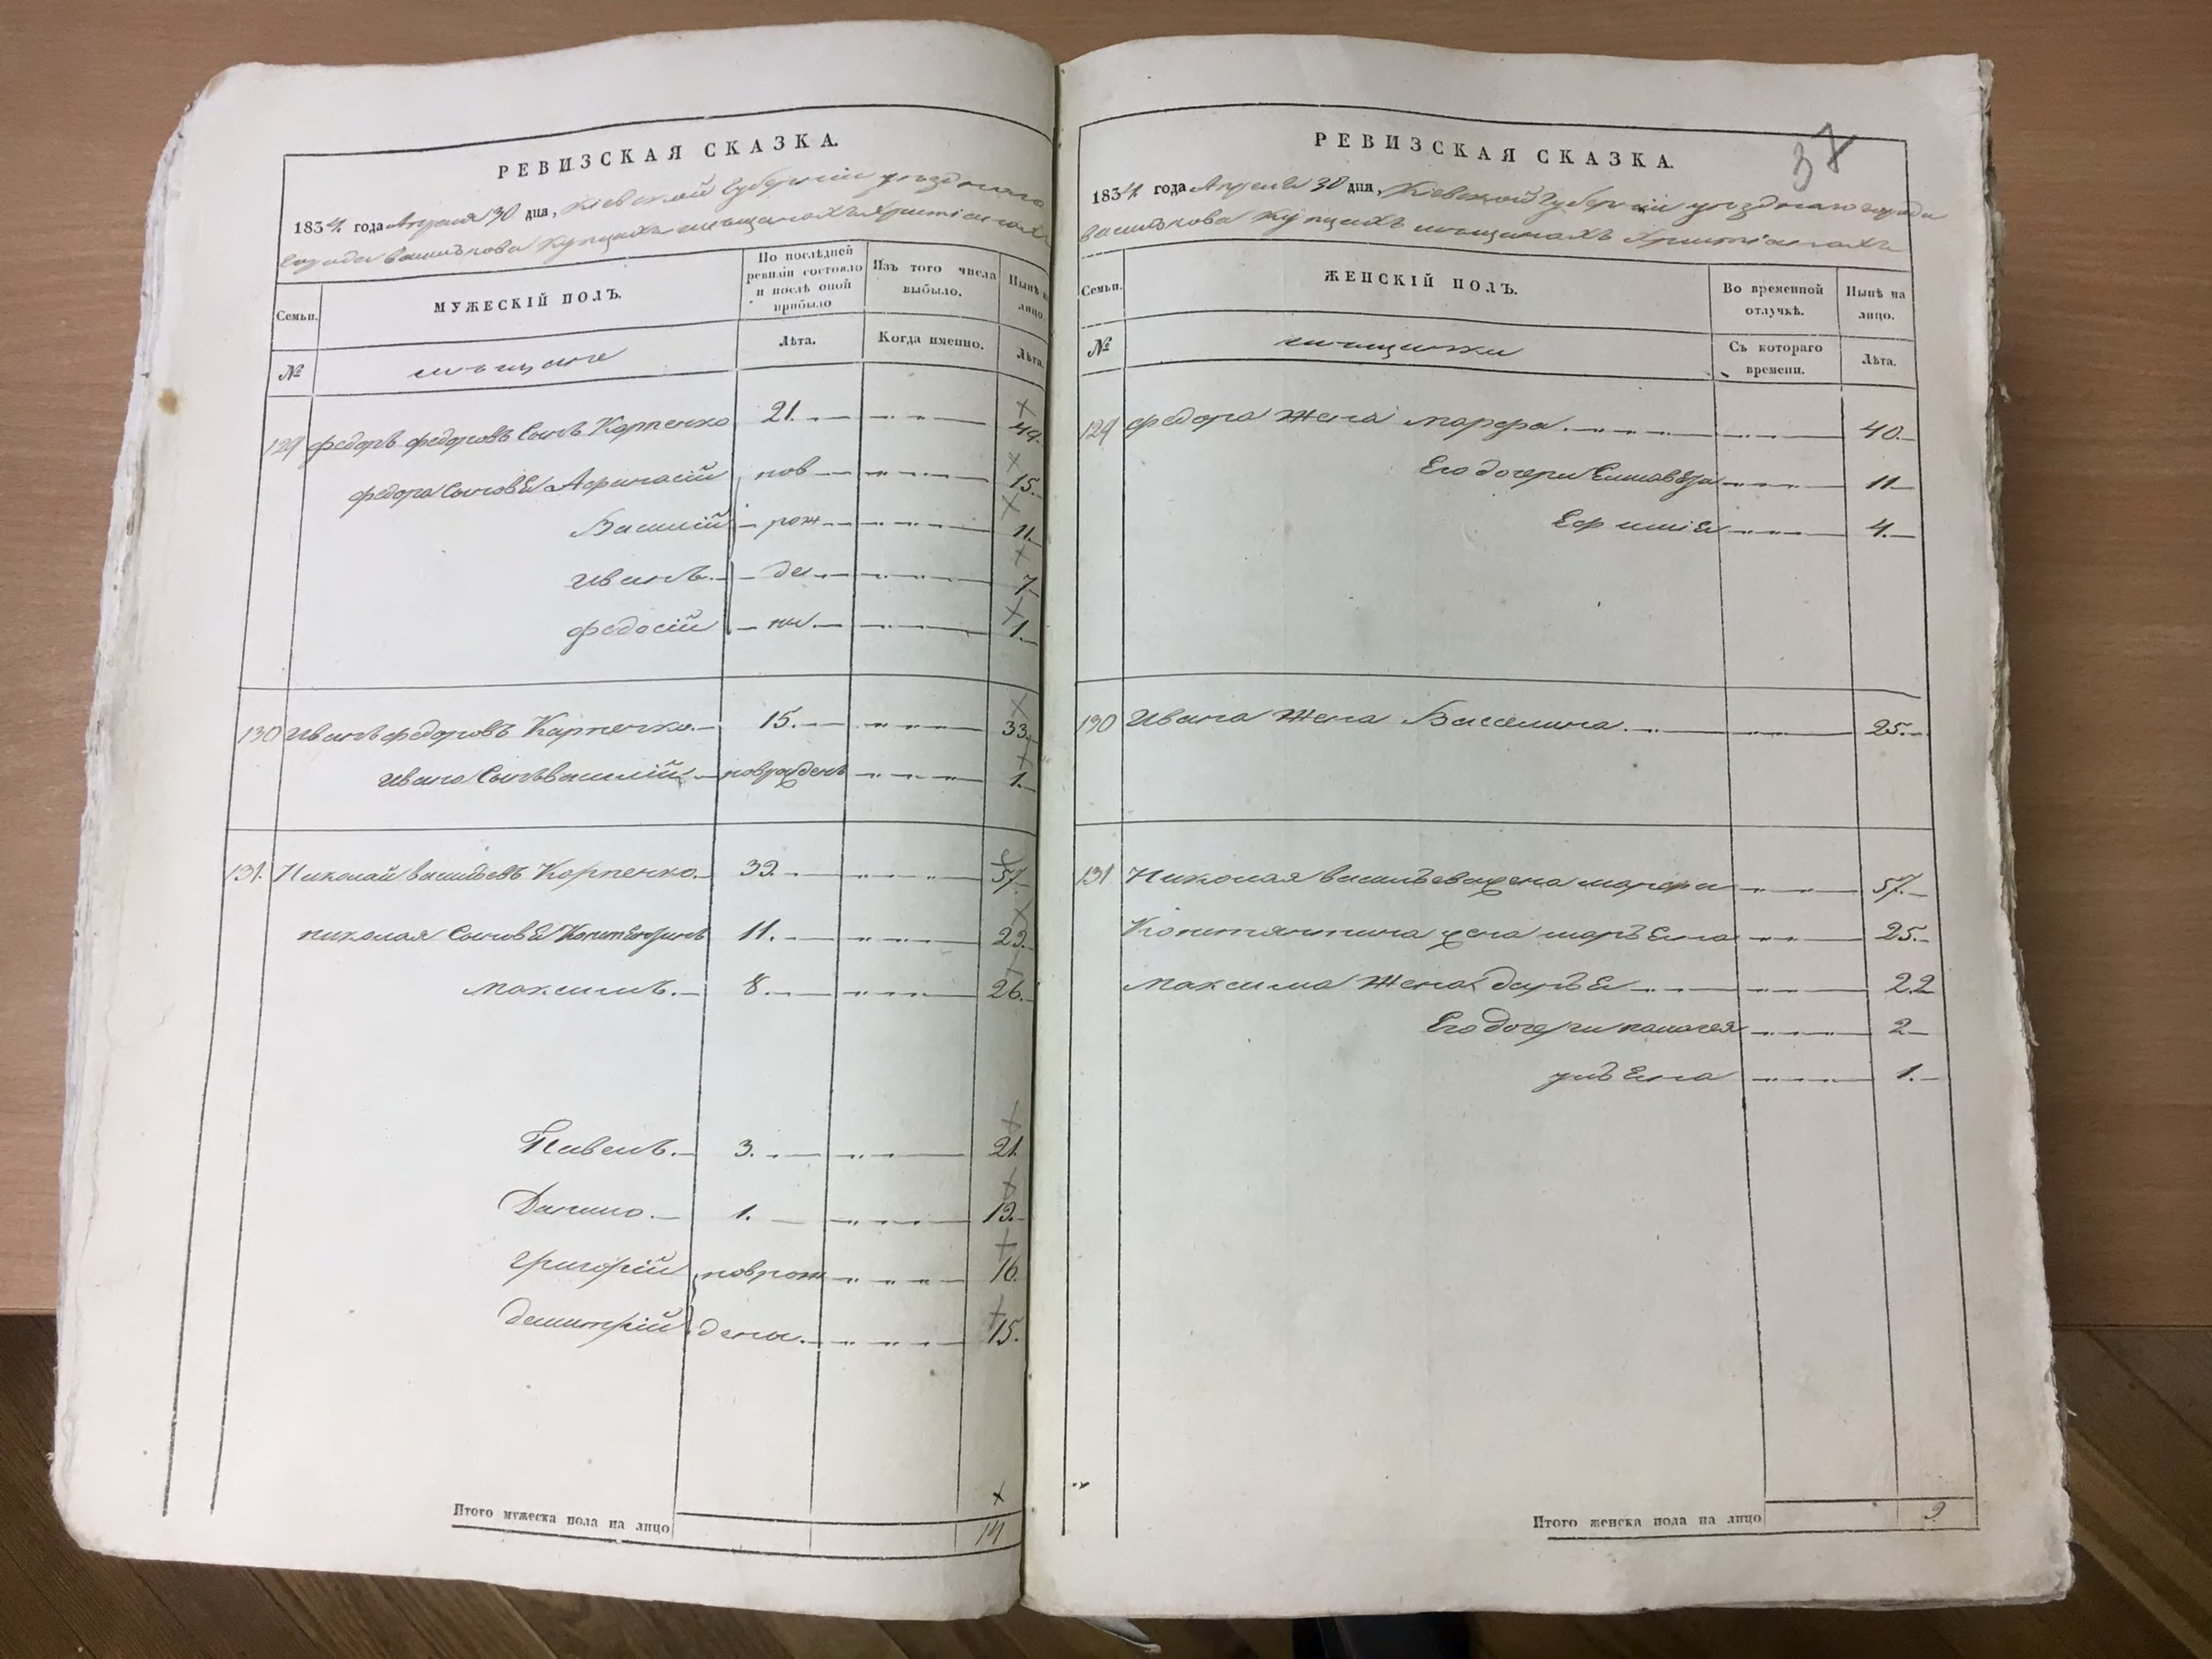 РЕВИЗСКАЯ СКАЗКА.
1834 года Апреля 30 дня, Кіевской Губерніи уѣзднаго
города Василькова Купцахъ мещанахъ Христіанахъ
Семьи.
МУЖЕСКІЙ ПОЛЪ.
По послѣдней ревизіи состояло и послѣ оной прибыло
Изъ того числа выбыло.
Нынѣ на лицо.
№
мещане
Лѣта.
Когда именно.
Лѣта.
129 Федоръ Федоровъ сынъ Карпенко 21. 44.
Федора сыновья Афанасій нов 15.
Василій рож 11.
Иванъ. де 7.
Федосій ны. 1.
130 Иванъ Федоровъ Карпенко. 15. 33.
Ивана сынъ Василій новрожденъ 1.
131. Николай Васильевъ Карпенко. 39. 57.
Николая сыновья Константинъ 11. 29.
Максимъ. 8. 26.
Павелъ. 3. 21.
Данило. 1. 19.
Григорій новрож 16.
Демитрій дены. 15.
Итого мужеска пола на лицо 14
37
РЕВИЗСКАЯ СКАЗКА.
1834 года Апреля 30 дня, Кіевской Губерніи уѣзднаго города
Василькова Купцахъ мещанахъ Христіанахъ
Семьи.
ЖЕНСКІЙ ПОЛЪ.
Во временной отлучкѣ.
Нынѣ на лицо.
№
мещанки
Съ котораго времени.
Лѣта.
129 Федора жена Марфа. 40.
Его дочери Елисавета 11
Ефимія 4.
130 Ивана жена Василина. 25.
131 Николая Васильева жена Марфа 57.
Константина жена Марьяна 25.
Максима жена Дарья 22
Его дочери Палагея 2
Ульяна 1.
Итого женска пола на лицо 9